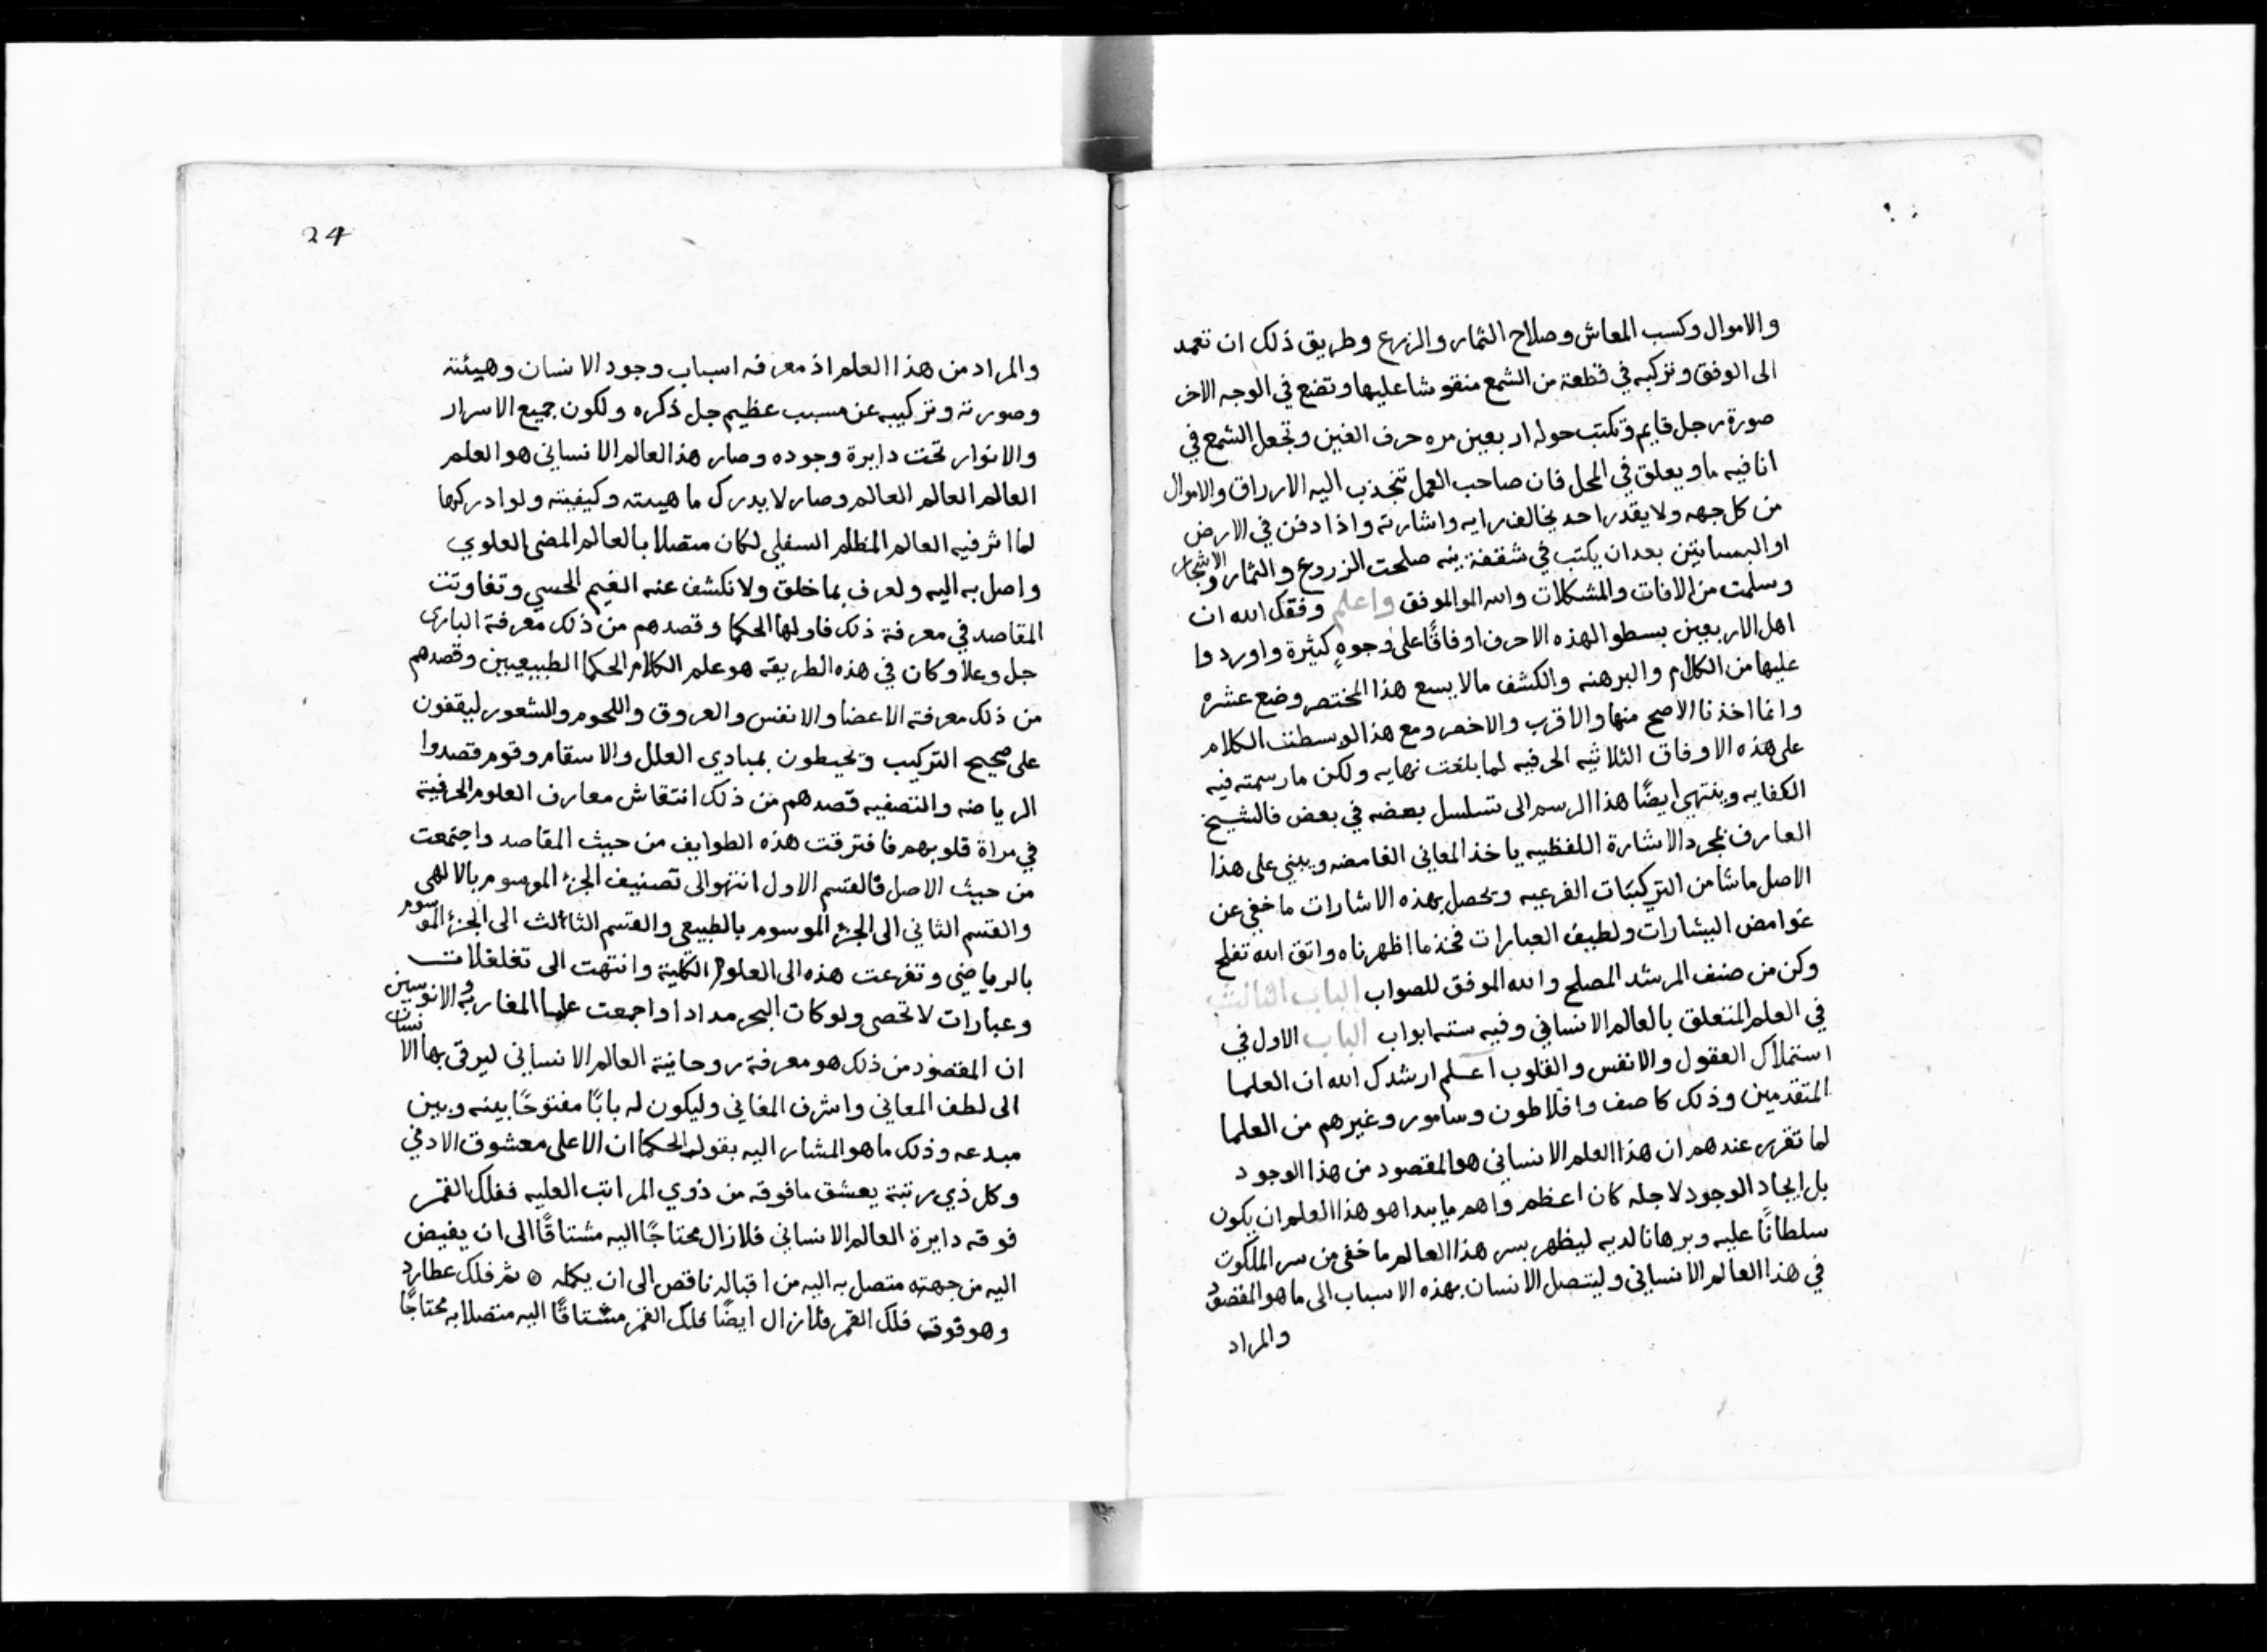 والاموال وكسب المعاش وصلاح الثمار والزرع وطريق ذلك ان تعمد
الى الوفق وتركبه في قطعة من الشمع منقوشا عليها وتضع في الوجه الاخر
صورة رجل قايم وتكتب حوله اربعين مره حرف الغين وتجعل الشمع في
انا فيه ما ويعلق في المحل فان صاحب العمل تنجذب اليه الارزاق والاموال
من كل جهه ولا يقدر احد يخالف رايه واشارته واذا دفن في الارض
او البساتين بعد ان يكتب في شقفة نيه صلحت الزروع والثمار والاشجار
وسلمت من الافات والمشكلات والله الموفق واعلم وفقك الله ان
اهل الاربعين بسطوا لهذه الاحرف اوفاقًا على وجوهٍ كثيرة واوردوا
عليها من الكلام والبرهنه والكشف مالا يسع هذا المختصر وضع عشره
وانما اخذنا الاصح منها والاقرب والاخصر ومع هذا لو بسطت الكلام
على هذه الاوفاق الثلاثيه الحرفيه لما بلغت نهايه ولكن ما رسمته فيه
الكفايه وينتهي ايضًا هذا الرسم الى تسلسل بعضه في بعض فالشيخ
العارف بمجرد الاشارة اللفظيه ياخذ المعاني الغامضه ويبني على هذا
الاصل ما شا من التركيبات الفرعيه ويحصل بهذه الاشارات ما خفي عن
غوامض البشارات ولطيف العبارات فخذ ما اظهرناه واتق الله تفلح
وكن من صنف المرشد المصلح والله الموفق للصواب الباب الثالث
في العلم المتعلق بالعالم الانساني وفيه سته ابواب الباب الاول في
استملاك العقول والانفس والقلوب اعلم ارشدك الله ان العلما
المتقدمين وذلك كاصف وافلاطون وسامور وغيرهم من العلما
لما تقرر عندهم ان هذا العلم الانساني هو المقصود من هذا الوجود
بل ايجاد الوجود لاجله كان اعظم واهم ما يبدا هو هذا العلم ان يكون
سلطانًا عليه وبرهانا لديه ليظهر بسر هذا العالم ما خفى من سر الملكوت
في هذا العالم الانساني وليتصل الانسان بهذه الاسباب الى ما هو المقصود
والمراد
24
والمراد من هذا العلم اذ معرفه اسباب وجود الانسان وهيئته
وصورته وتركيبه عن مسبب عظيم جل ذكره ولكون جميع الاسرار
والانوار تحت دايرة وجوده وصار هذا العالم الانساني هو العلم
العالم العالم العالم وصار لا يدرك ماهيته وكيفيته ولو ادركها
لما اثر فيه العالم المظلم السفلي لكان متصلا بالعالم المضى العلوي
واصل به اليه ولعرف بما خلق ولانكشف عنه الغيم الحسي وتفاوتت
المقاصد في معرفة ذلك فاولها الحكما وقصدهم من ذلك معرفة البارى
جل وعلا وكان في هذه الطريقه هو علم الكلام الحكما الطبيعيين وقصدهم
من ذلك معرفته الاعضا والانفس والعروق واللحوم والشعور ليقفون
على صحيح التركيب ويحيطون بمبادي العلل والاسقام وقوم قصدوا
الرياضه والتصفيه قصدهم من ذلك انتقاش معارف العلوم الحرفية
في مراة قلوبهم فافترقت هذه الطوايف من حيث المقاصد واجتمعت
من حيث الاصل فالقسم الاول انتهوا الى تصنيف الجزء الموسوم بالالهى
والقسم الثاني الى الجزء الموسوم بالطبيعى والقسم الثالث الى الجزء الموسوم
بالرياضي وتفرعت هذه الى العلوم الكلية وانتهت الى تغلغلات
وعبارات لا تحصى ولو كان البحر مدادا واجمعت علما المغاربة والانوسيين
ان المقصود من ذلك هو معرفة روحانية العالم الانساني ليرقى بها الانسان
الى لطف المعاني واشرف المغاني وليكون له بابًا مفتوحًا بينه وبين
مبدعه وذلك ما هو المشار اليه بقوله الحكما ان الاعلى معشوق الادني
وكل ذي رتبة يعشق ما فوقه من ذوي المراتب العليه ففلك القمر
فوقه دايرة العالم الانساني فلازال محتاجًا اليه مشتاقًا الى ان يفيض
اليه من جهته متصل به اليه من اقباله ناقص الى ان يكمله ۞ ثم فلك عطارد
وهو فوقه فلك القمر فلازال ايضًا فلك القمر مشتاقًا اليه متصلا به محتاجًا